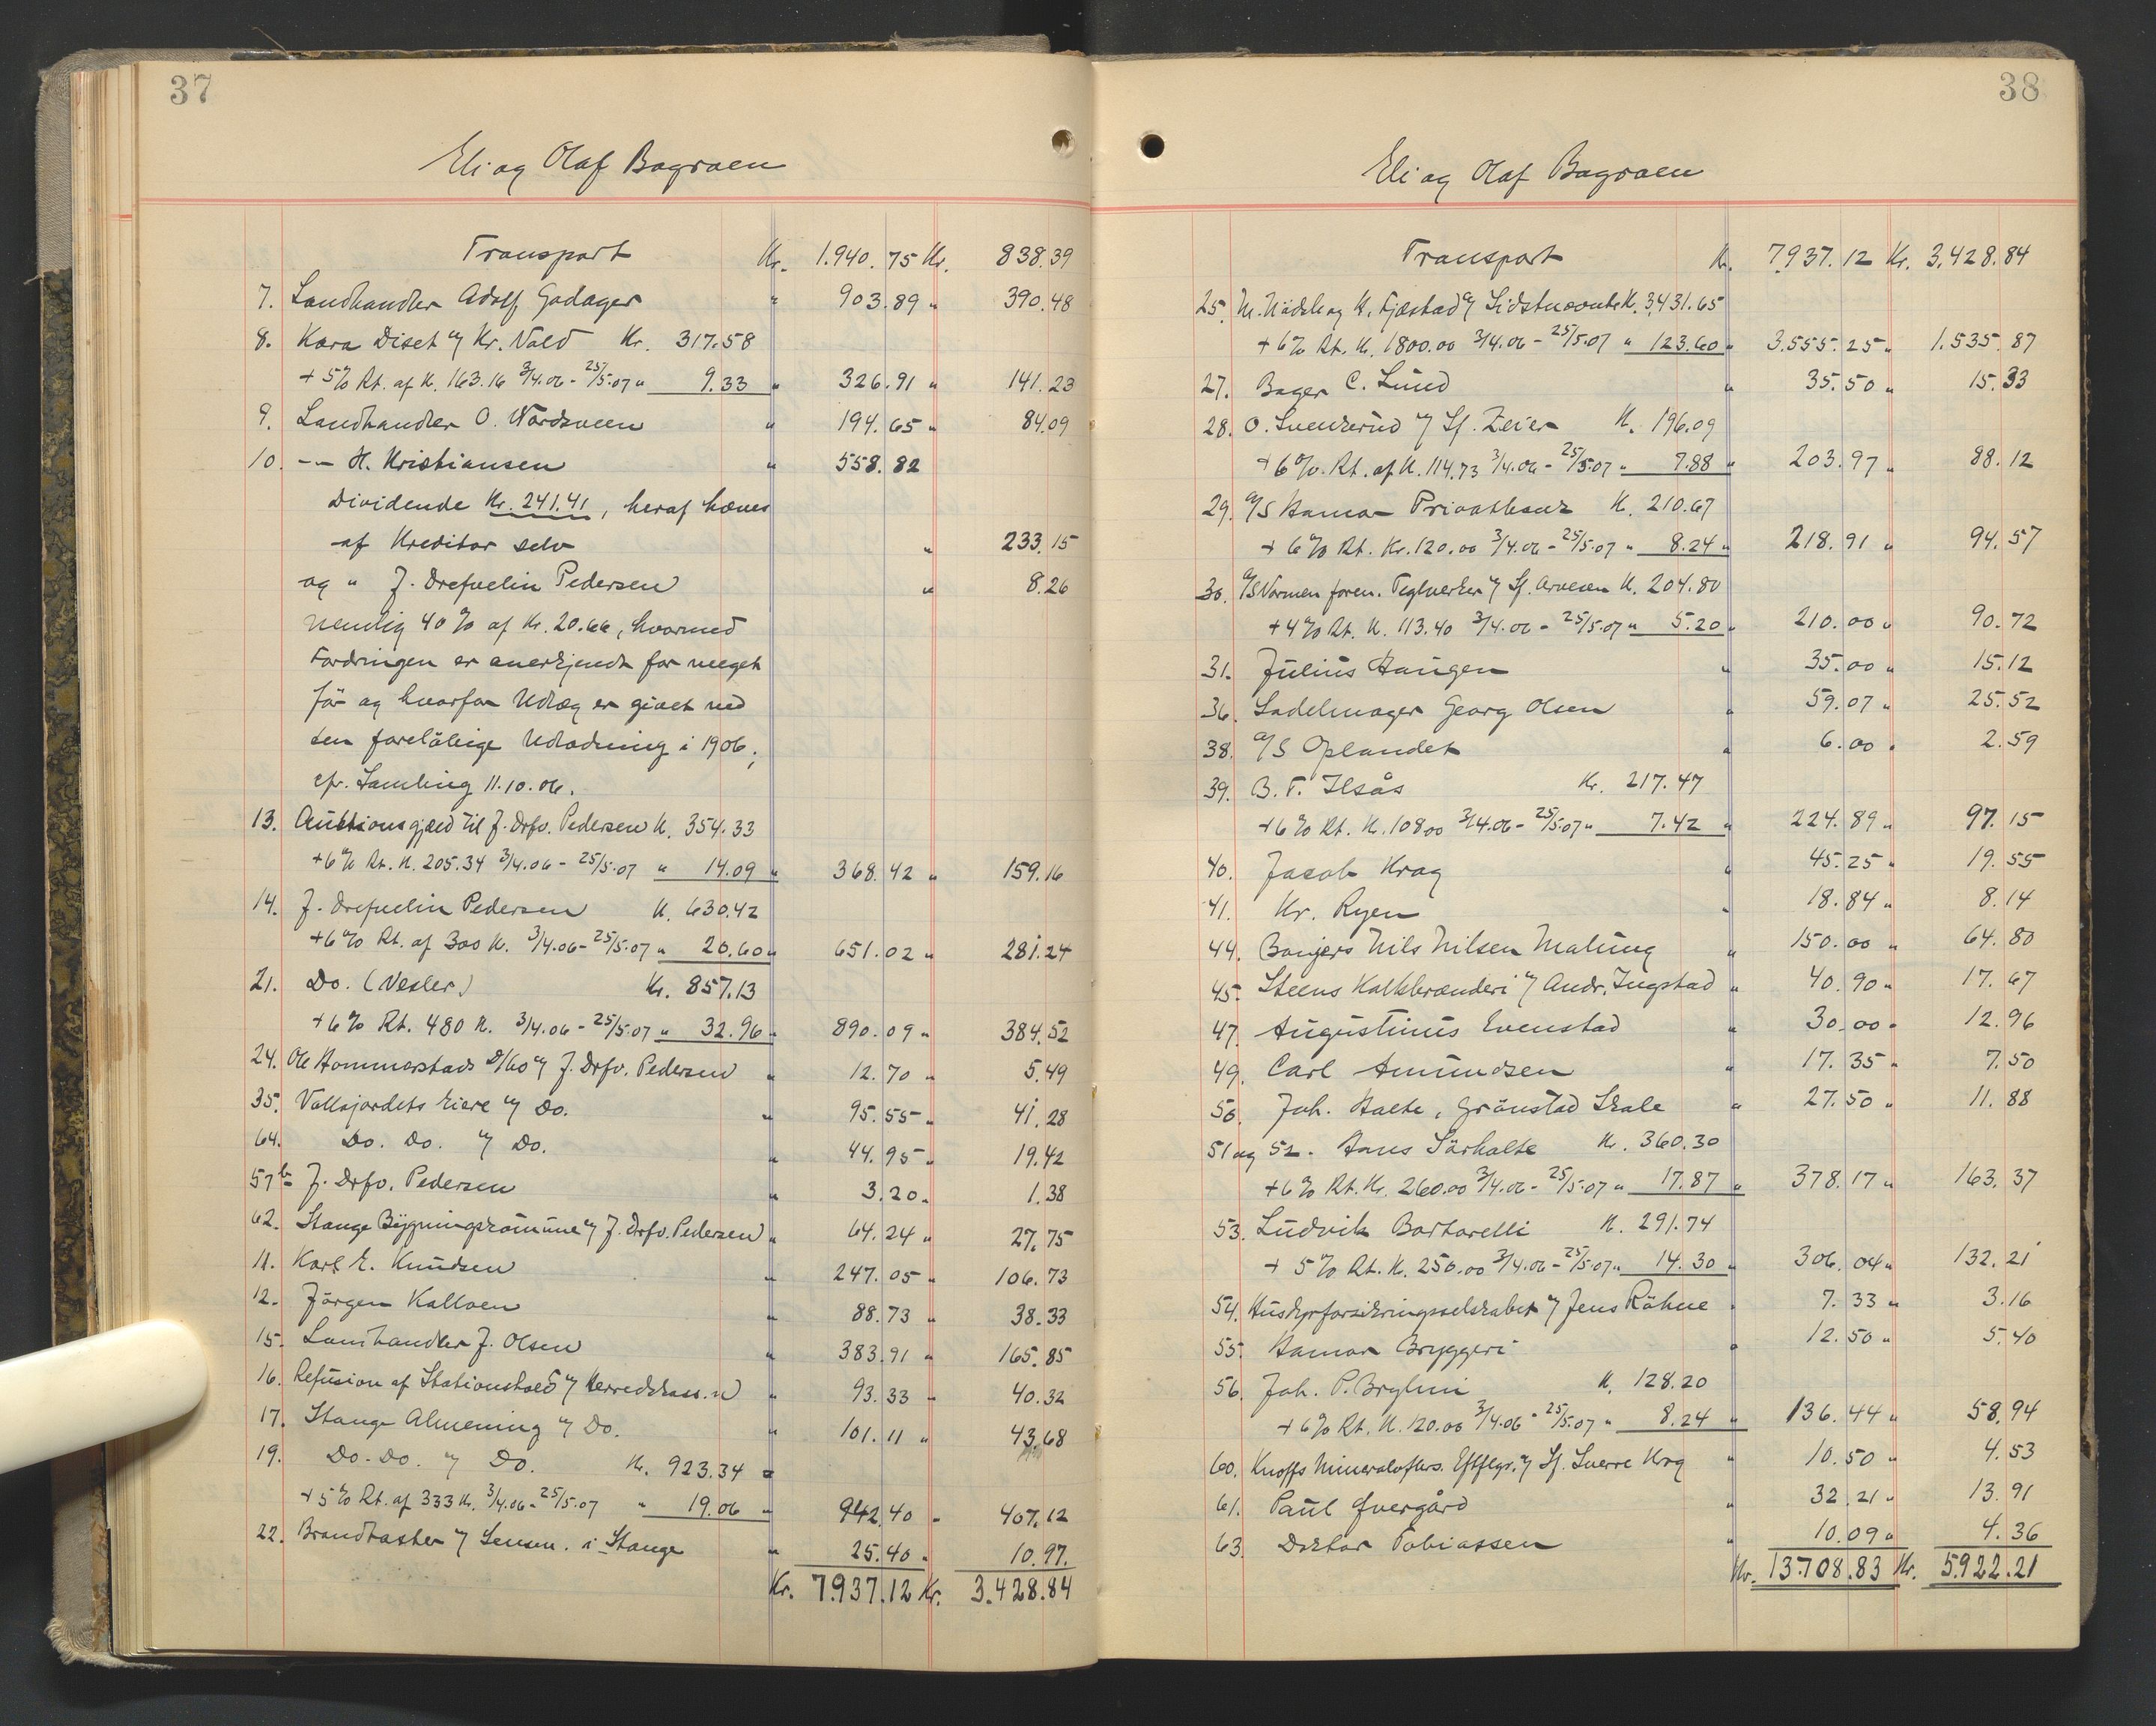 37
Eli og Olaf Bagroen
Transport Kr. 1.940.75 Kr. 838.39
7. Landhandler Adolf Godager " 903.89 " 390.48
8. Kara Diset v/ Kr. Vold Kr. 317.58
+ 5% Rt. af K. 163.16 3/4.06 - 25/5.07 " 9.33 " 326.91 " 141.23
9. Landhandler O. Nordsveen " 194.65 " 84.09
10. -"- H. Kristiansen " 558.82
Dividende Kr. 241.41, heraf hæves
af Kreditor selv " 233.15
og " J. Drefvelin Pedersen " 8.26
nemlig 40% af Kr. 20.66, hvormed
Fordringen er anerkjendt for meget
før og hvorfor Udlæg er givet ved
den foreløbige Udlodning i 1906,
cfr. Samling 11.10.06.
13. Auktionsgjæld til J. Drfv. Pedersen K. 354.33
+ 6% Rt. K. 205.34 3/4.06 - 25/5.07 " 14.09 " 368.42 " 159.16
14. J. Drefvelin Pedersen K. 630.42
+ 6% Rt. af 300 K. 3/4.06 - 25/5.07 " 20.60 " 651.02 " 281.24
21. Do. (Vexler) Kr. 857.13
+ 6% Rt. 480 K. 3/4.06 - 25/5.07 " 32.96 " 890.09 " 384.52
24. Ole Hommerstads D/bo v/ J. Drfv. Pedersen " 12.70 " 5.49
35. Vollajordets Eiere v/ Do. " 95.55 " 41.28
64. Do. Do. v/ Do. " 44.95 " 19.42
57b J. Drfv. Pedersen " 3.20 " 1.38
62. Stange Bygningskommune v/ J. Drfv. Pedersen " 64.24 " 27.75
11. Karl E. Knudsen " 247.05 " 106.73
12. Jörgen Kalloen " 88.73 " 38.33
15. Landhandler J. Olsen " 383.91 " 165.85
16. Refusion af Stationshold v/ Herredskass.n " 93.33 " 40.32
17. Stange Almening v/ Do. " 101.11 " 43.68
19. Do. Do. v/ Do. Kr. 923.34
+ 5% Rt. af 333 K. 3/4.06 - 25/5.07 " 19.06 " 942.40 " 407.12
22. Brandkassen v/ Lensm. i Stange " 25.40 " 10.97
Kr. 7.937.12 Kr. 3.428.84
38
Eli og Olaf Bagroen
Transport Kr. 7.937.12 Kr. 3.428.84
25. M. Nädsle og K. Fjæstad v/ Sidstnævnte K. 3,431.65
+ 6% Rt. K. 1800.00 3/4.06 - 25/5.07 " 123.60 " 3.555.25 " 1.535.87
27. Bager C. Lund " 35.50 " 15.33
28. O. Svenkerud v/ Sf. Zeier K. 196.09
+ 6% Rt. af K. 114.73 3/4.06 - 25/5.07 " 7.88 " 203.97 " 88.12
29. A/S Hamar Privatbank K. 210.67
+ 6% Rt. Kr. 120.00 3/4.06 - 25/5.07 " 8.24 " 218.91 " 94.57
30. A/S Vormen foren. Teglverker v/ Sf. Arvesen K. 204.80
+ 4% Rt. K. 113.40 3/4.06 - 25/5.07 " 5.20 " 210.00 " 90.72
31. Julius Haugen " 35.00 " 15.12
36. Sadelmager Georg Olsen " 59.07 " 25.52
38. A/S Oplandet " 6.00 " 2.59
39. B. T. Ilsås Kr. 217.47
+ 6% Rt. K. 108.00 3/4.06 - 25/5.07 " 7.42 " 224.89 " 97.15
40. Jacob Krag " 45.25 " 19.55
41. Kr. Ryen " 18.84 " 8.14
44. Borgers Nils Nilsen Malung " 150.00 " 64.80
45. Steens Kalkbrænderi v/ Andr. Ingstad " 40.90 " 17.67
47. Augustinus Evenstad " 30.00 " 12.96
49. Carl Amundsen " 17.35 " 7.50
50. Joh. Halte, Grönstad Skole " 27.50 " 11.88
51 og 52. Hans Särholte K. 360.30
+ 6% Rt. Kr. 260.00 3/4.06 - 25/5.07 " 17.87 " 378.17 " 163.37
53. Ludvik Bortorelli K. 291.74
+ 5% Rt. K. 250.00 3/4.06 - 25/5.07 " 14.30 " 306.04 " 132.21
54. Husdyrforsikringsselskabet v/ Jens Röhne " 7.33 " 3.16
55. Hamar Bryggeri " 12.50 " 5.40
56. Joh. P. Bryhni K. 128.20
+ 6% Rt. K. 120.00 3/4.06 - 25/5.07 " 8.24 " 136.44 " 58.94
60. Knoffs Mineralofkrs. Eftflgr. v/ Sf. Sverre Krog " 10.50 " 4.53
61. Paul Övergård " 32.21 " 13.91
63. Doktor Tobiassen " 10.09 " 4.36
Kr. 13.708.83 Kr. 5.922.21